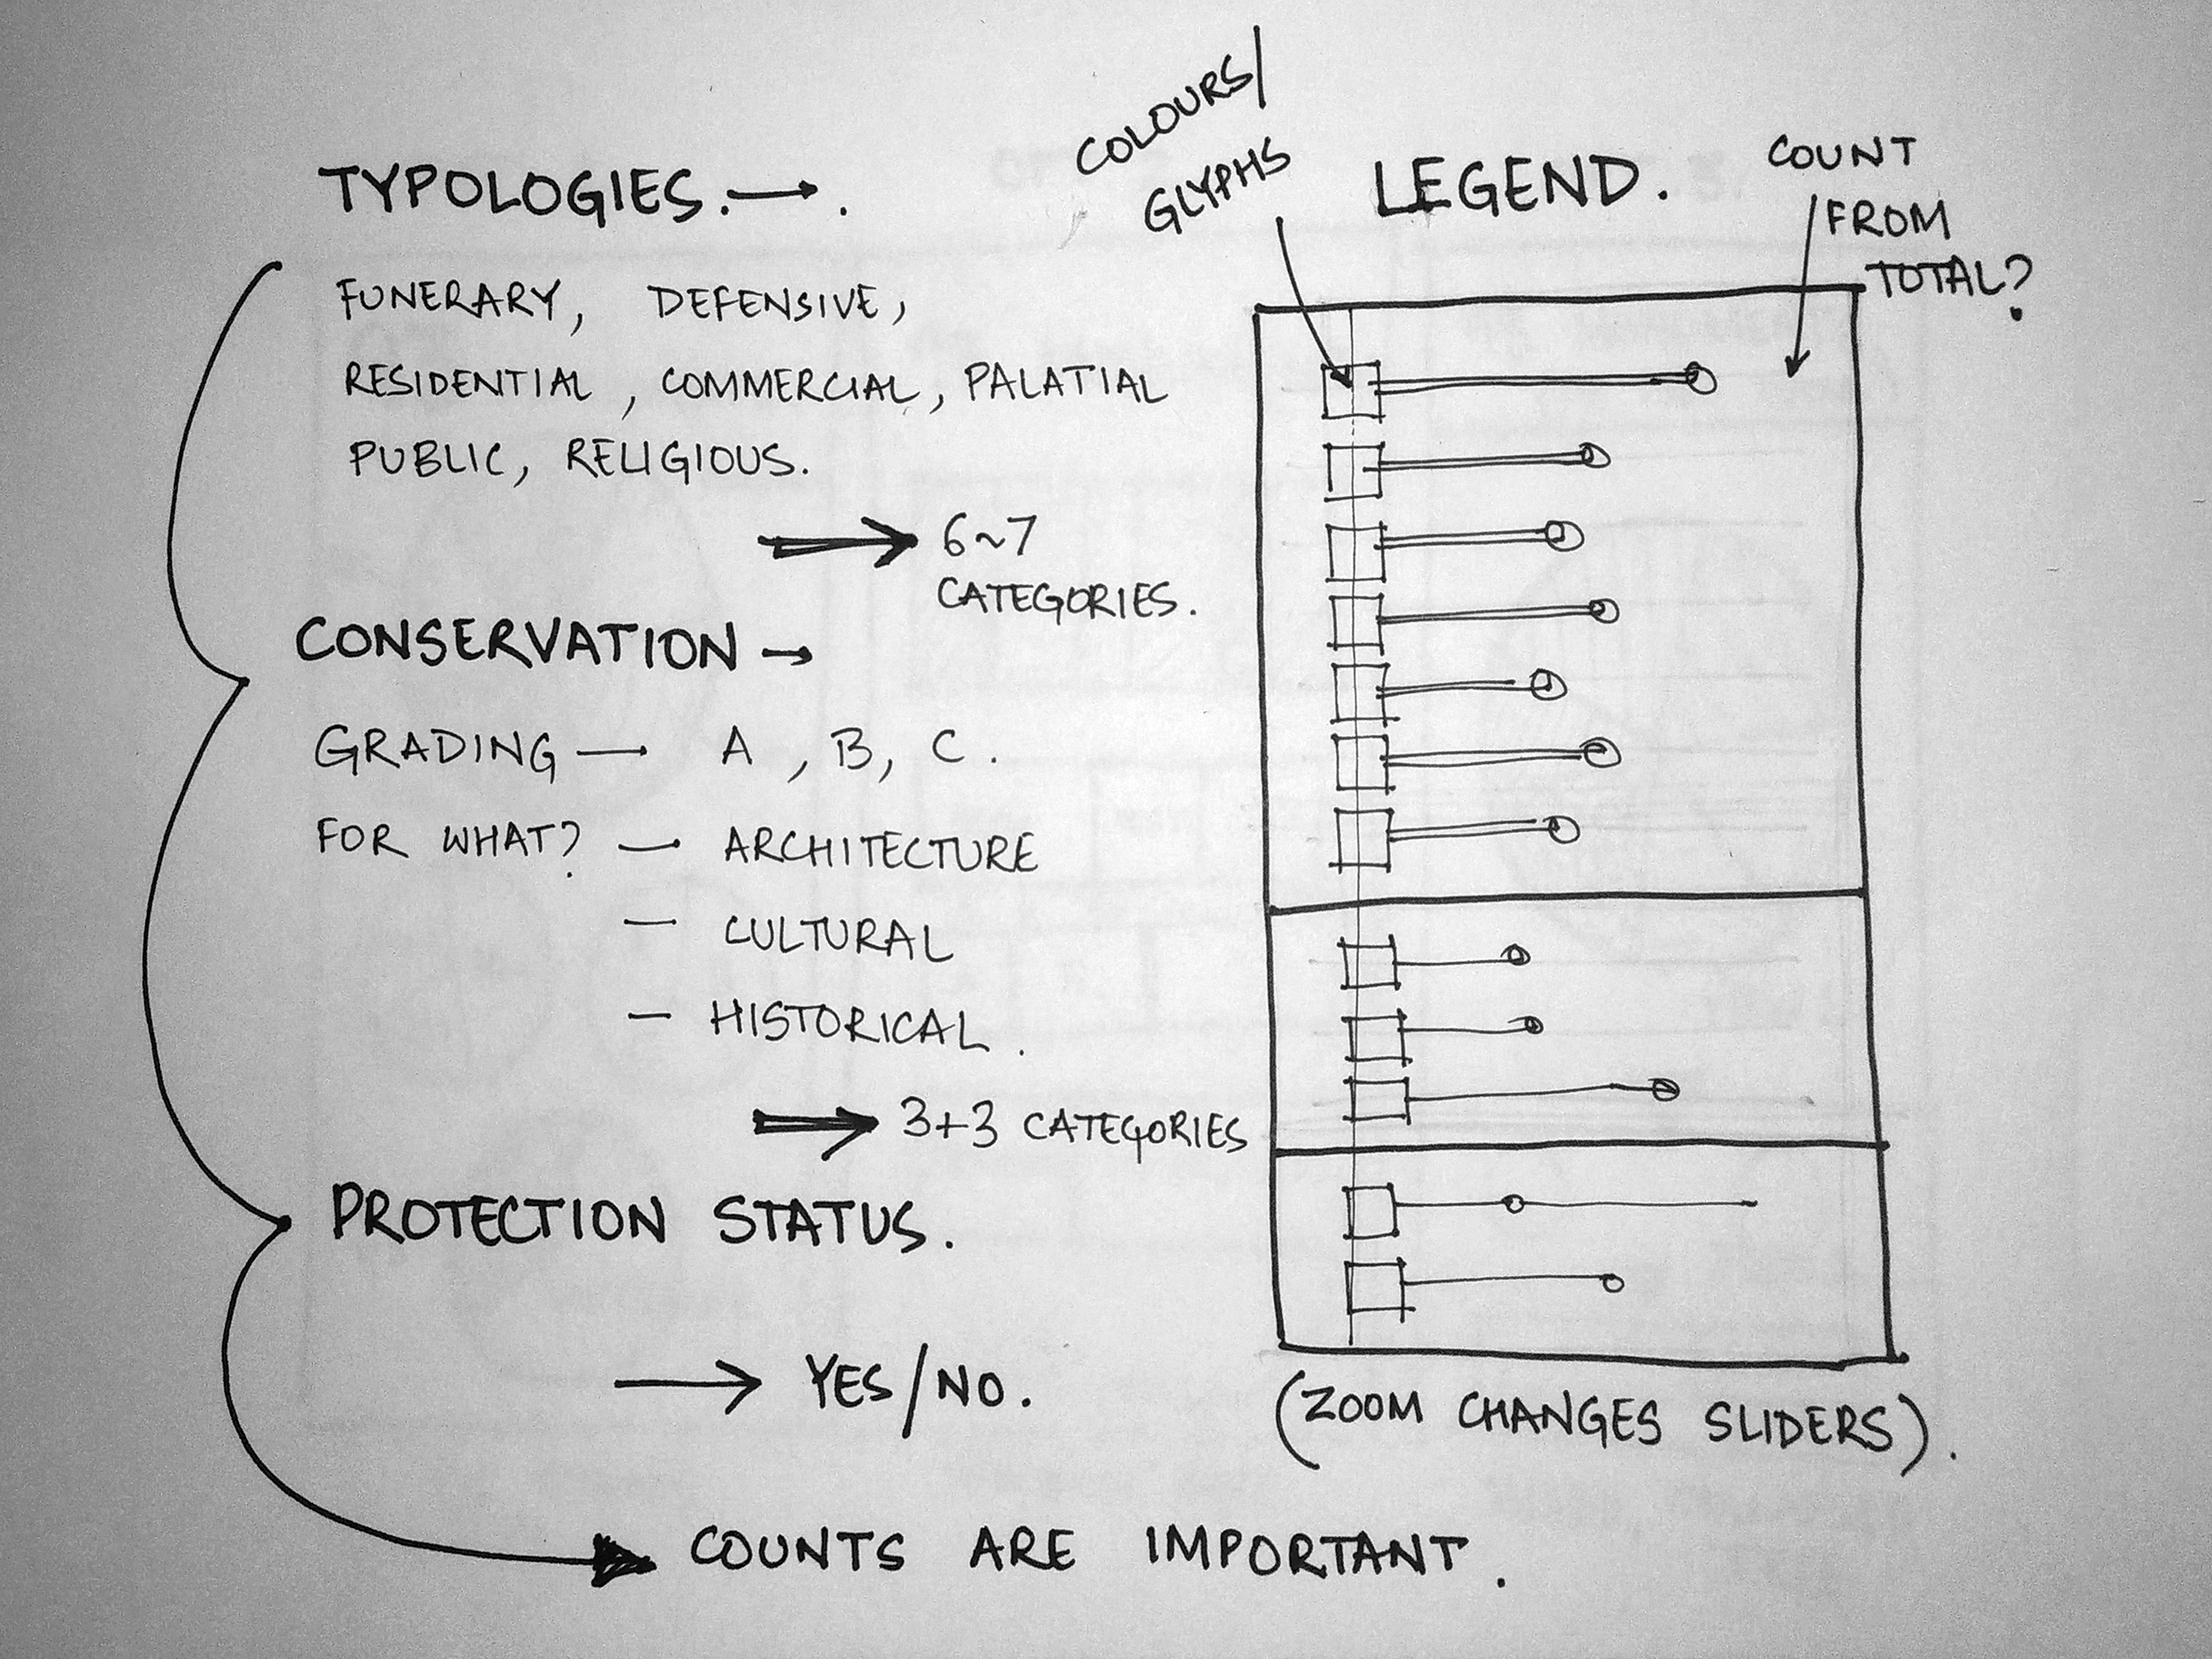 TYPOLOGIES. → .
FUNERARY, DEFENSIVE,
RESIDENTIAL, COMMERCIAL, PALATIAL
PUBLIC, RELIGIOUS.
→ 6~7
CATEGORIES.
CONSERVATION →
GRADING — A, B, C.
FOR WHAT? — ARCHITECTURE
— CULTURAL
— HISTORICAL.
→ 3+3 CATEGORIES
PROTECTION STATUS.
→ YES/NO.
COUNTS ARE IMPORTANT.
COLOURS/
GLYPHS
LEGEND.
COUNT
FROM
TOTAL?
(ZOOM CHANGES SLIDERS).